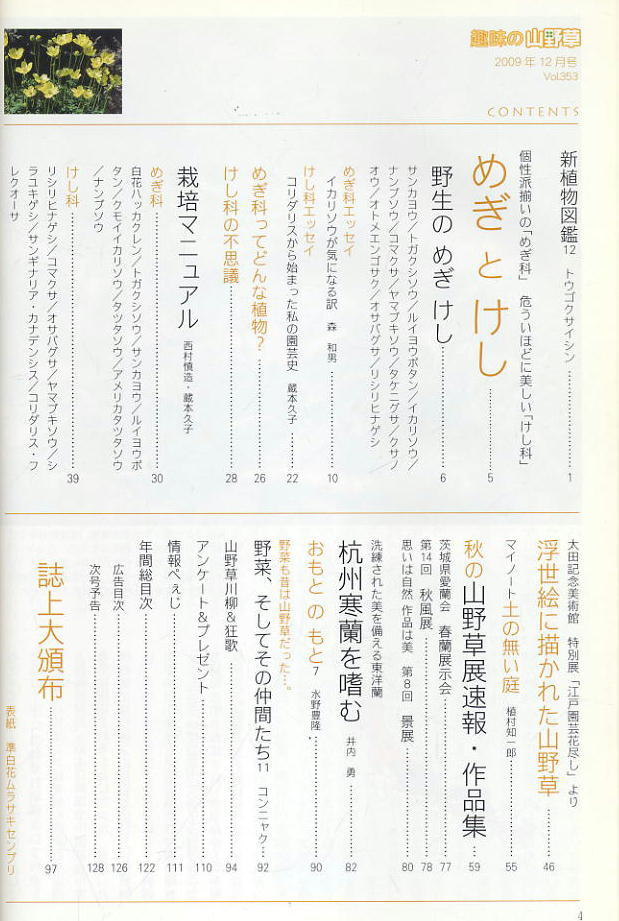 趣味の山野草
2009年12月号
Vol.353
CONTENTS
新植物図鑑12 トウゴクサイシン………1
個性派揃いの「めぎ科」 危ういほどに美しい「けし科」
めぎ と けし………5
野生の めぎ けし………6
サンカヨウ／トガクシソウ／ルイヨウボタン／イカリソウ／
ナンブソウ／コマクサ／ヤマブキソウ／タケニグサ／クサノ
オウ／オトメエンゴサク／オサバグサ／リシリヒナゲシ
めぎ科エッセイ
イカリソウが気になる訳 森 和男………10
けし科エッセイ
コリダリスから始まった私の園芸史 蔵本久子………22
めぎ科ってどんな植物？………26
けし科の不思議………28
栽培マニュアル 西村慎造・蔵本久子
めぎ科………30
白花ハッカクレン／トガクシソウ／サンカヨウ／ルイヨウボ
タン／クモイイカリソウ／タツタソウ／アメリカタツタソウ
／ナンブソウ
けし科………39
リシリヒナゲシ／コマクサ／オサバグサ／ヤマブキソウ／シ
ラユキゲシ／サンギナリア・カナデンシス／コリダリス・フ
レクオーサ
太田記念美術館 特別展「江戸園芸花尽し」より
浮世絵に描かれた山野草………46
マイノート 土の無い庭 植村知一郎………55
秋の山野草展速報・作品集………59
茨城県愛蘭会 春蘭展示会………77
第14回 秋風展………78
思いは自然 作品は美 第8回 景展………80
洗練された美を備える東洋蘭
杭州寒蘭を嗜む 井内 勇………82
おもと の もと7 水野豊隆………90
野菜も昔は山野草だった…。
野菜、そしてその仲間たち11 コンニャク………92
山野草川柳＆狂歌………94
アンケート＆プレゼント………110
情報ぺぇじ………111
年間総目次………122
広告目次………126
次号予告………128
誌上大頒布………97
表紙 準白花ムラサキセンブリ
4